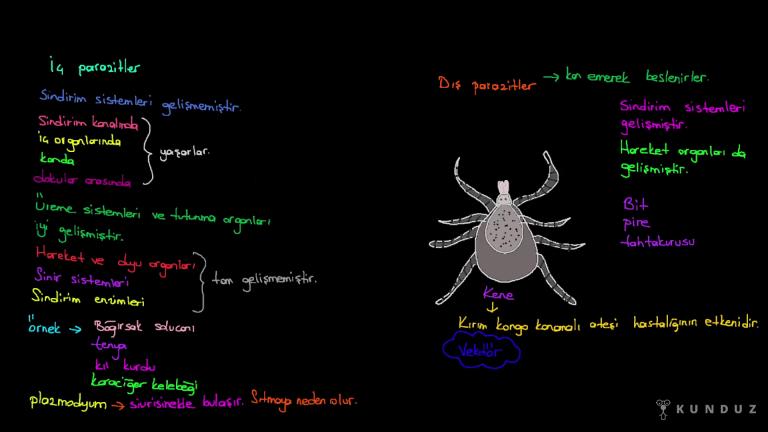 İç parazitler
Sindirim sistemleri gelişmemiştir.
Sindirim kanalında
iç organlarında
kanda
dokular arasında
yaşarlar.
Üreme sistemleri ve tutunma organları
iyi gelişmiştir.
Hareket ve duyu organları
Sinir sistemleri
Sindirim enzimleri
tam gelişmemiştir.
örnek → Bağırsak solucanı
tenya
kıl kurdu
karaciğer kelebeği
plazmodyum → sivrisinekle bulaşır. Sıtmaya neden olur.
Dış parazitler → kan emerek beslenirler.
Sindirim sistemleri
gelişmiştir.
Hareket organları da
gelişmiştir.
Bit
pire
tahtakurusu
Kene
Kırım kongo kanamalı ateşi hastalığının etkenidir.
Vektör
KUNDUZ